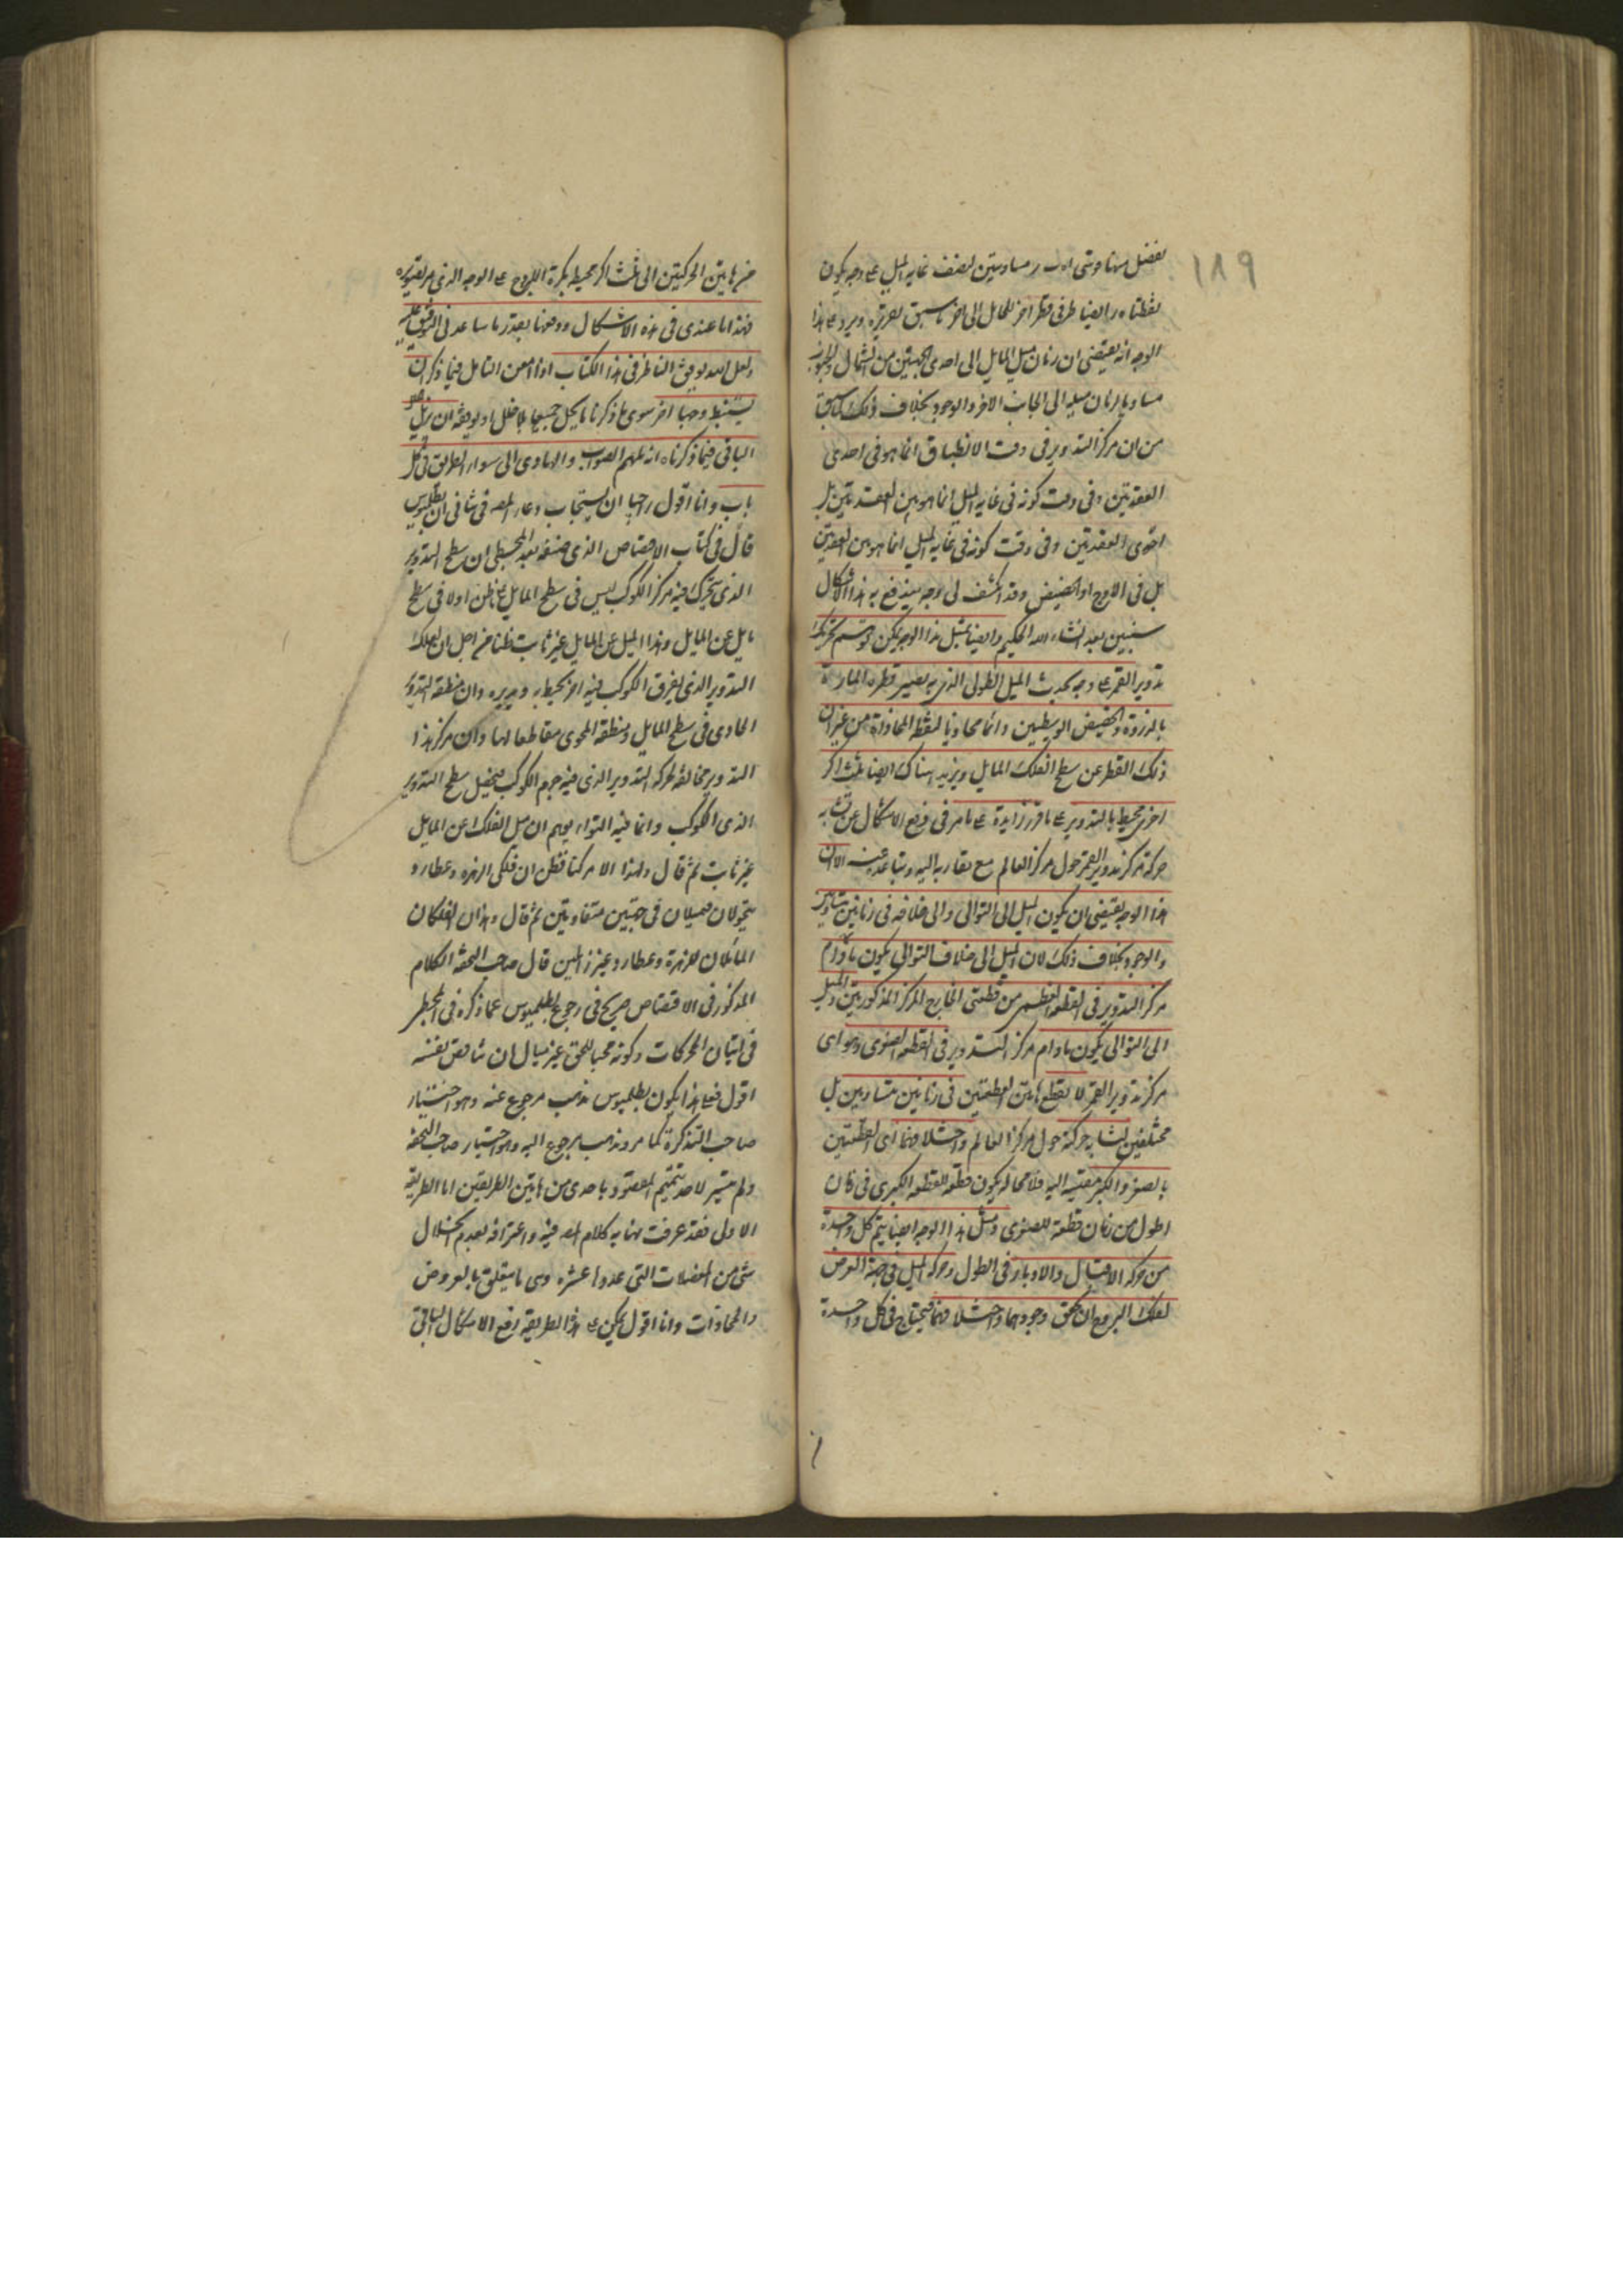 ١٨٩
نقطتاه ر ايضا طرفى قطر اخر للمايل الى اخر ما سبق تقريره ويرد على هذا
الوجه انه يقتضى ان زمان ميل المايل الى احدى الجهتين من الشمال والجنوب
مساويا لزمان ميله الى الجانب الاخر والوجود بخلاف ذلك كما سبق
من ان مركز التدوير فى وقت الانطباق انما هو فى احدى
العقدتين وفى وقت كونه فى غاية الميل انما هو بين العقدتين بل
احدى العقدتين وفى وقت كونه فى غاية الميل انما هو بين العقدتين
بل فى الاوج او الحضيض وقد انكشف لى وجه يندفع به هذا الاشكال
سنبين بعد انشاء الله الحكيم وايضا بمثل هذا الوجه يمكن توهم تحريك
تدوير القمر على وجه يحدث الميل الطولى الذى به يصير قطره المار
بالذروة والحضيض الوسطيين دائما محاذيا لنقطة المحاذاة من غير ان
ذلك القطر عن سطح الفلك المايل ويزيد هناك ايضا ثلث اكر
اخر محيط بالتدوير على ما قرر زايدة على ما مر فى رفع الاشكال عن تشابه
حركة مركز تدوير القمر حول مركز العالم مع تقاربه اليه وتباعده عنه الا ان
هذا الوجه يقتضى ان يكون الميل الى التوالى والى خلافه فى زمانين متساويين
والوجود بخلاف ذلك لان الميل الى خلاف التوالى يكون ما دام
مركز التدوير فى القطعة العظمى من قطعتى الخارج المركز المذكورتين والميل
الى التوالى يكون ما دام مركز التدوير فى القطعة الصغرى وهو اى
مركز تدوير القمر لا يقطع هاتين القطعتين فى زمانين متساويين بل
مختلفين لتشابه حركته حول مركز العالم واختلافهما اى القطعتين
بالصغر والكبر مقيسة اليه فلا محالة يكون قطعه للقطعة الكبرى فى زمان
اطول من زمان قطعه للصغرى ومثل هذا الوجه ايضا يتم كل واحدة
من حركة الاقبال والادبار فى الطول وحركة الميل فى جهة العرض
لفلك البروج ان تحقق وجودهما واختلافهما فيحتاج فى كل واحدة
من هاتين الحركتين الى ثلث اكر محيط بكرة البروج على الوجه الذى مر تقريره
فهذا ما عندى فى هذه الاشكال ودفعها بقدر ما ساعدنى التوفيق عليه
ولعل الله يوفق الناظر فى هذا الكتاب اذا امعن التامل فيما ذكر ان
يستنبط وجها اخر سوى ما ذكرنا ما يحل جميعها بلا خلل او يوفقه ان يزيل خلل
الباقى فيما ذكرناه انه ملهم الصواب والهادى الى سواء الطرائق فى كل
باب وانا اقول راجيا ان يستجاب دعاء المص فى شانى ان بطلميوس
قال فى كتاب الاقتصاص الذى صنفه بعد المجسطى ان سطح التدوير
الذى يتحرك فيه مركز الكوكب ليس فى سطح المايل على ما ظن اولا فى سطح
مايل عن المايل وهذا الميل عن المايل غير ثابت ظنا من اجل ان لفلك
التدوير الذى يغرق الكوكب فيه اخر يحيط به ويديره وان منطقة التدوير
الحاوى فى سطح المايل ومنطقة المحوى مقاطعا لها وان مركز هذا
التدوير مخالفة لحركة التدوير الذى فيه جرم الكوكب فيخيل سطح التدوير
الذى الكوكب وانما فيه التواء يوهم ان ميل الفلك عن المايل
غير ثابت ثم قال ولهذا الامر كنا نظن ان فلكى الزهرة وعطارد
يتحولان فيميلان فى جهتين متفاوتين ثم قال وهذان الفلكان
المائلان للزهرة وعطارد غير زايلين قال صاحب التحفة الكلام
المذكور فى الاقتصاص صريح فى رجوع بطلميوس عما ذكره فى المجسطى
فى اثبات الحركات وكونه محبا للحق غير مبال ان يناقض نفسه
اقول فعلى هذا يكون بطلميوس مذهب مرجوع عنه وهو اختيار
صاحب التذكرة كما مر ومذهب مرجوع اليه وهو اختيار صاحب التحفة
ولم يتيسر لاحد تتميم المقصود باحدى من هاتين الطريقتين اما الطريقة
الاولى فقد عرفت نهاية كلام المص فيه واعترافه بعدم انحلال
شئ من المعضلات التى عدوها عشرة وهى ما يتعلق بالعروض
والمحاذات وانا اقول يمكن على هذا الطريقة رفع الاشكال الباقى